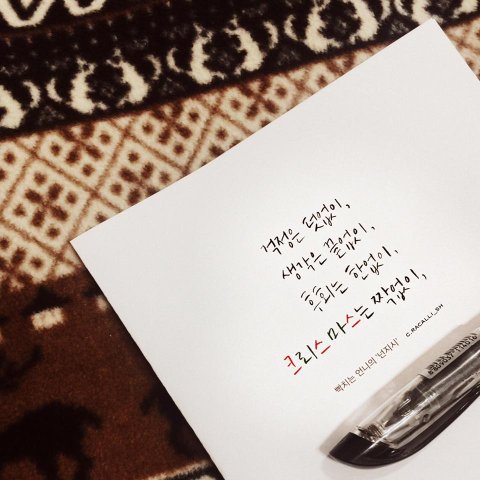 걱정은 덧없이,
생각은 끝없이,
후회는 한없이,
크리스마스는 짝없이,
빡치는 언니의 '넌지시' C.RACALLI_SH